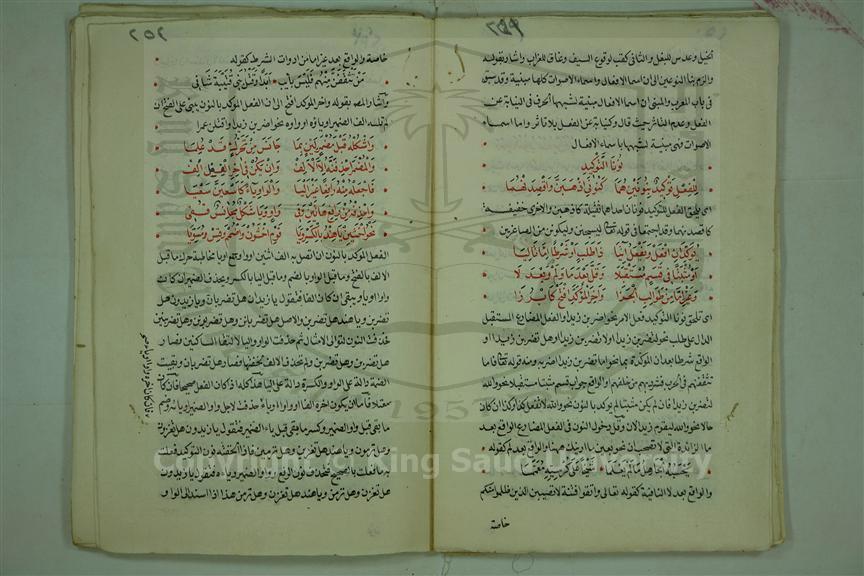 ٢٥١
الخيل وعدس للبغل والثاني كقب لوقوع السيف وغاق للغراب وأشار بقوله
والزم بنا النوعين الى ان اسما الافعال واسماء الاصوات كلها مبنية وقد سبق
في باب المعرب والمبنى ان اسما الافعال مبنية لشبهها بالحرف في النيابة عن
الفعل وعدم التأثر حيث قال وكنيابة عن الفعل بلا تأثر واما اسماء
الاصوات فهى مبنية لشبهها باسماء الافعال
نونا التوكيد
للفعل توكيد بنونين هما كنونى اذهبن واقصدنهما
اى يلحق الفعل للتوكيد نونان احداهما ثقيلة كاذهبن والاخرى خفيفة
كاقصدنهما وقد اجتمعا في قوله تعالى ليسجنن وليكونن من الصاغرين
يؤكدان افعل ويفعل آتيا ذا طلب او شرطا اما تاليا
او مثبتا في قسم مستقبلا وقل بعد ما ولم وبعد لا
وغير اما من طوالب الجزا واخر المؤكد افتح كابرزا
اى تلحق نونا التوكيد فعل الامر نحو اضربن زيدا والفعل المضارع المستقبل
الدال على طلب نحو لتضربن زيدا ولا تضربن زيدا وهل تضربن زيدا او
الواقع شرطا بعد ان المؤكدة بما نحو اما تضربن زيدا اضربه ومنه قوله تعالى فاما
تثقفنهم في الحرب فشرد بهم من خلفهم والواقع جواب قسم مثبتا مستقبلا نحو والله
لتضربن زيدا فان لم يكن مثبتا لم يؤكد بالنون نحو والله لا تفعل كذا وكذا ان كان
حالا نحو والله ليقوم زيد الان وقل دخول النون في الفعل المضارع الواقع بعد
ما الزائدة التي لا تصحب ان نحو بعين ما ارينك ههنا والواقع بعد لم كقوله
يحسبه الجاهل ما لم يعلما شيخا على كرسيه معمما
والواقع بعد لا النافية كقوله تعالى واتقوا فتنة لا تصيبن الذين ظلموا منكم
خاصة
٢٥٢
خاصة والواقع بعد غير اما من ادوات الشرط كقوله
من نثقفن منهم فليس بآيب ابدا وقتل بني قتيبة شافي
وأشار المصنف بقوله واخر المؤكد افتح الى ان الفعل المؤكد بالنون يبنى على الفتح ان
لم تله الف الضمير او ياؤه او واوه نحو اضربن زيدا واقتلن عمرا
واشكله قبل مضمر لين بما جانس من تحرك قد علما
والمضمر احذفنه الا الالف وان يكن في اخر الفعل الف
فاجعله منه رافعا غير اليا والواو ياء كاسعين سعيا
واحذفه من رافع هاتين وفي واو ويا شكل مجانس قفي
نحو اخشين يا هند بالكسر ويا قوم اخشون واضمم وقس مسويا
الفعل المؤكد بالنون ان اتصل به الف اثنين او واو جمع او يا مخاطبة حرك ما قبل
الالف بالفتح وما قبل الواو بالضم وما قبل اليا بالكسر ويحذف الضمير ان كان
واوا او ياء ويبقى ان كان الفا فتقول يا زيدان هل تضربان ويا زيدون هل
تضربن ويا هند هل تضربن والاصل هل تضربانن وهل تضربونن وهل تضربينن
فحذفت النون لتوالى الامثال ثم حذفت الواو واليا لالتقاء الساكنين فصار
هل تضربن وهل تضربن ولم تحذف الالف لخفتها فصار هل تضربان وبقيت
الضمة دالة على الواو والكسرة دالة على اليا هذا كله اذا كان الفعل صحيحا فان كان
معتلا فاما ان يكون اخره الفا او واوا او ياء
ما بقى قبل واو الضمير وكسر ما بقى قبل ياء الضمير فتقول يا زيدون هل تغزون
وهل ترمون ويا هند هل تغزين وهل ترمين فاذا الحقته نون التوكيد فعلت
به ما فعلت بالصحيح فتحذف نون الرفع وواو الضمير وياءه فتقول يا زيدون
هل تغزن وهل ترمن ويا هند هل تغزن وهل ترمن هذا اذا اسند الى الواو و
Copyright © King Saud University
1957